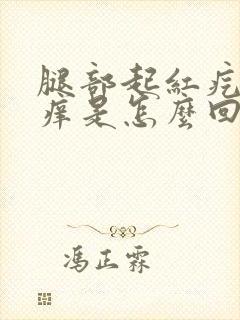 腿部起紅疙
痒是怎麼回
馮正霖